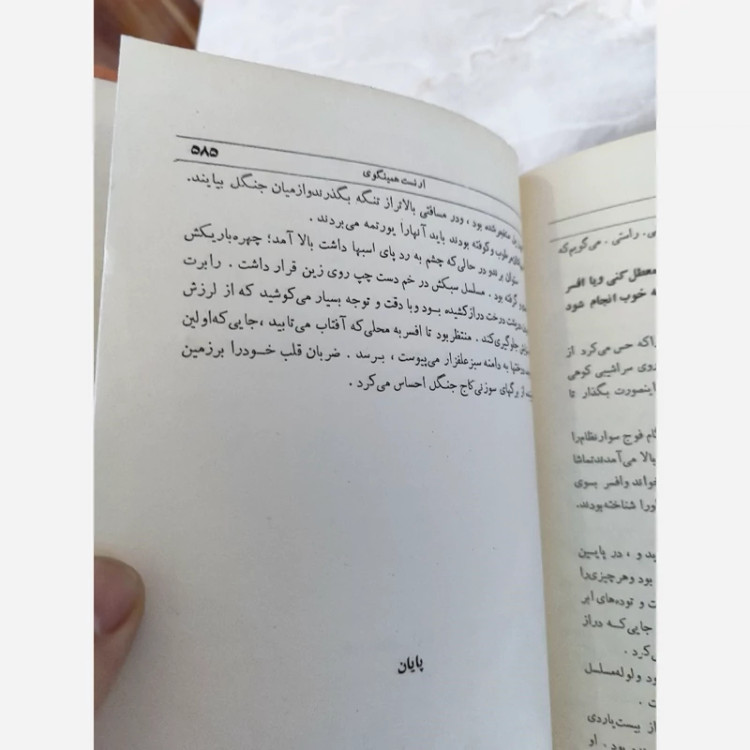 ۵۸۵
ارنست همینگوی
منفجر شده بود ، ودر مسافتی بالاتراز تنگه بگذرندوازمیان جنگل بیایند.
وکوفته بودند باید آنهارا یورتمه می‌بردند .
در حالی‌که چشم به رد پای اسبها داشت بالا آمد؛ چهره‌باریکش
گرفته بود . مسلسل سبکش در خم دست چپ روی زین قرار داشت . رابرت
درخت درازکشیده بود وبا دقت و توجه بسیار می‌کوشید که از لرزش
جلوگیری‌کند . منتظربود تا افسربه محلی‌که آفتاب می‌تابید ،جایی‌که‌اولین
درختها به دامنه سبزعلفزار می‌پیوست ، برسد . ضربان قلب خودرا برزمین
از برگهای سوزنی‌کاج جنگل احساس می‌کرد .
پایان
. راستی . می‌گویم‌که
معطل کنی ویا افسر
خوب انجام شود
حس می‌کرد از
روی سراشیبی کوهی
اینصورت بگذار تا
فوج سوارنظام‌را
بالا می‌آمدندتماشا
وافسر بسوی
شناخته‌بودند.
و ، در پایین
بود وهرچیزی‌را
و توده‌های ابر
جایی‌که دراز
ولوله‌مسلسل
از بیست‌یاردی
بود . او